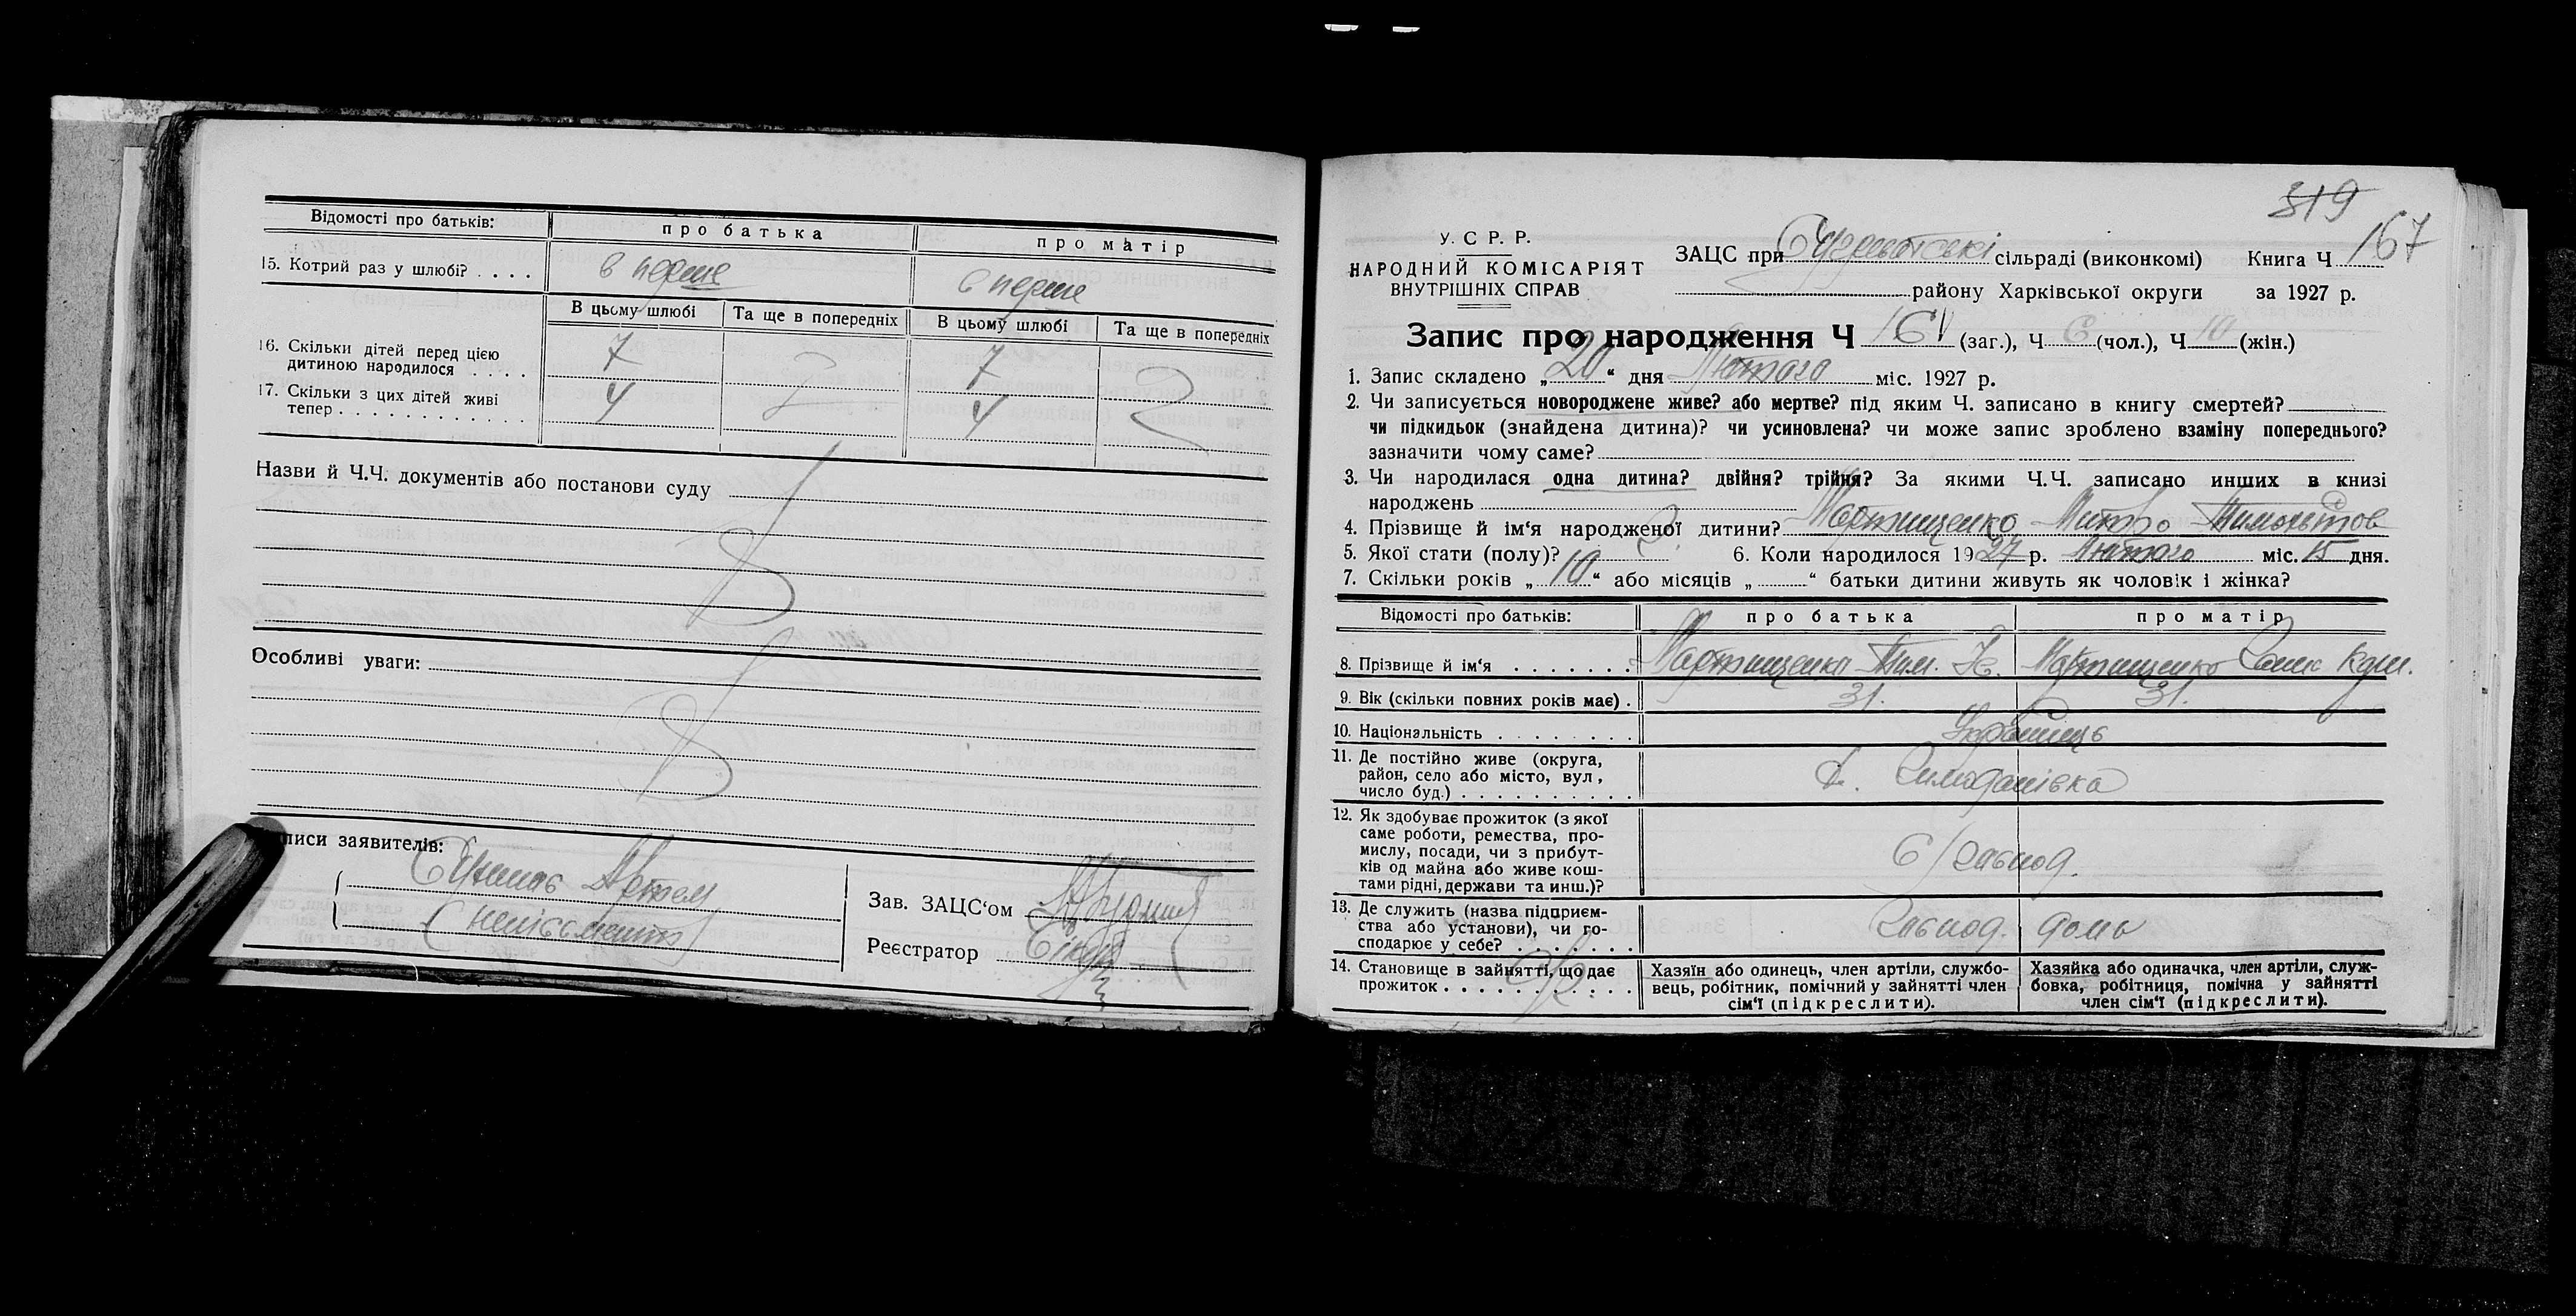 Відомості про батьків: про батька про матір
15. Котрий раз у шлюбі? . . . . в перше в перше
В цьому шлюбі Та ще в попередніх В цьому шлюбі Та ще в попередніх
16. Скільки дітей перед цією
дитиною народилося . . . . 7 7
17. Скільки з цих дітей живі
тепер . . . . . . . . . . . . 4 4
Назви й Ч.Ч. документів або постанови суду
Особливі уваги:
писи заявителів:
Артем
Зав. ЗАЦС'ом
Реєстратор
319
167
У. С Р. Р.
НАРОДНИЙ КОМІСАРІЯТ
ВНУТРІШНІХ СПРАВ
ЗАЦС при сільраді (виконкомі) Книга Ч
району Харківської округи за 1927 р.
Запис про народження Ч (заг.), Ч 6 (чол.), Ч 10 (жін.)
1. Запис складено „ 20 “ дня Лютого міс. 1927 р.
2. Чи записується новороджене живе? або мертве? під яким Ч. записано в книгу смертей?
чи підкидьок (знайдена дитина)? чи усиновлена? чи може запис зроблено взаміну попереднього?
зазначити чому саме?
3. Чи народилася одна дитина? двійня? трійня? За якими Ч.Ч. записано инших в книзі
народжень
4. Прізвище й ім'я народженої дитини? Мартищенко Митро
5. Якої стати (полу)? 6. Коли народилося 1927 р. Лютого міс. 15 дня.
7. Скільки років „ 10 “ або місяців „ “ батьки дитини живуть як чоловік і жінка?
Відомості про батьків: про батька про матір
8. Прізвище й ім'я . . . . . . . Мартищенко Тим. Мартищенко
9. Вік (скільки повних років має) . 31. 31.
10. Національність . . . . . . . . Українець
11. Де постійно живе (округа,
район, село або місто, вул,
число буд.) . . . . . . . . . .
12. Як здобуває прожиток (з якої
саме роботи, ремества, про-
мислу, посади, чи з прибут-
ків од майна або живе кош-
тами рідні, держави та инш.)?
13. Де служить (назва підприєм-
ства або установи), чи го-
сподарює у себе? . . . . . . .
14. Становище в зайнятті, що дає
прожиток . . . . . . . . . . . .
Хазяїн або одинець, член артіли, службо-
вець, робітник, помічний у зайнятті член
сім'ї (підкреслити).
Хазяйка або одиначка, член артіли, служ-
бовка, робітниця, помічна у зайнятті
член сім'ї (підкреслити).